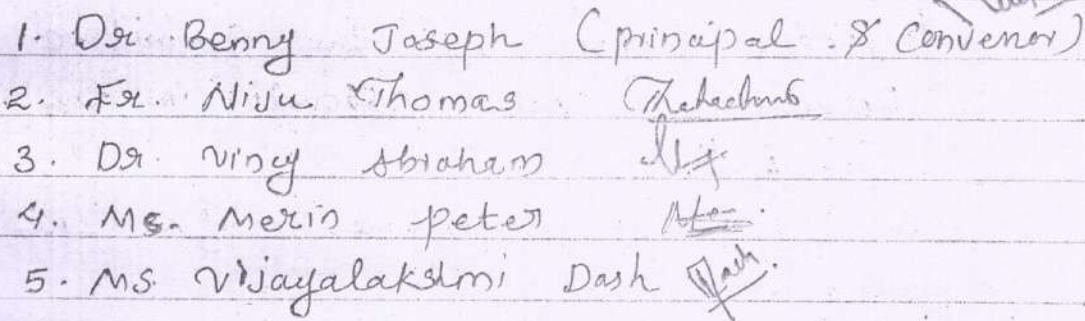 1. Dr. Benny Joseph (prinapal & Convenor)
2. Fr. Niju Thomas
3. Dr. Vincy Abraham
4. Ms. Merin peter
5. Ms. Vijayalakshmi Dash